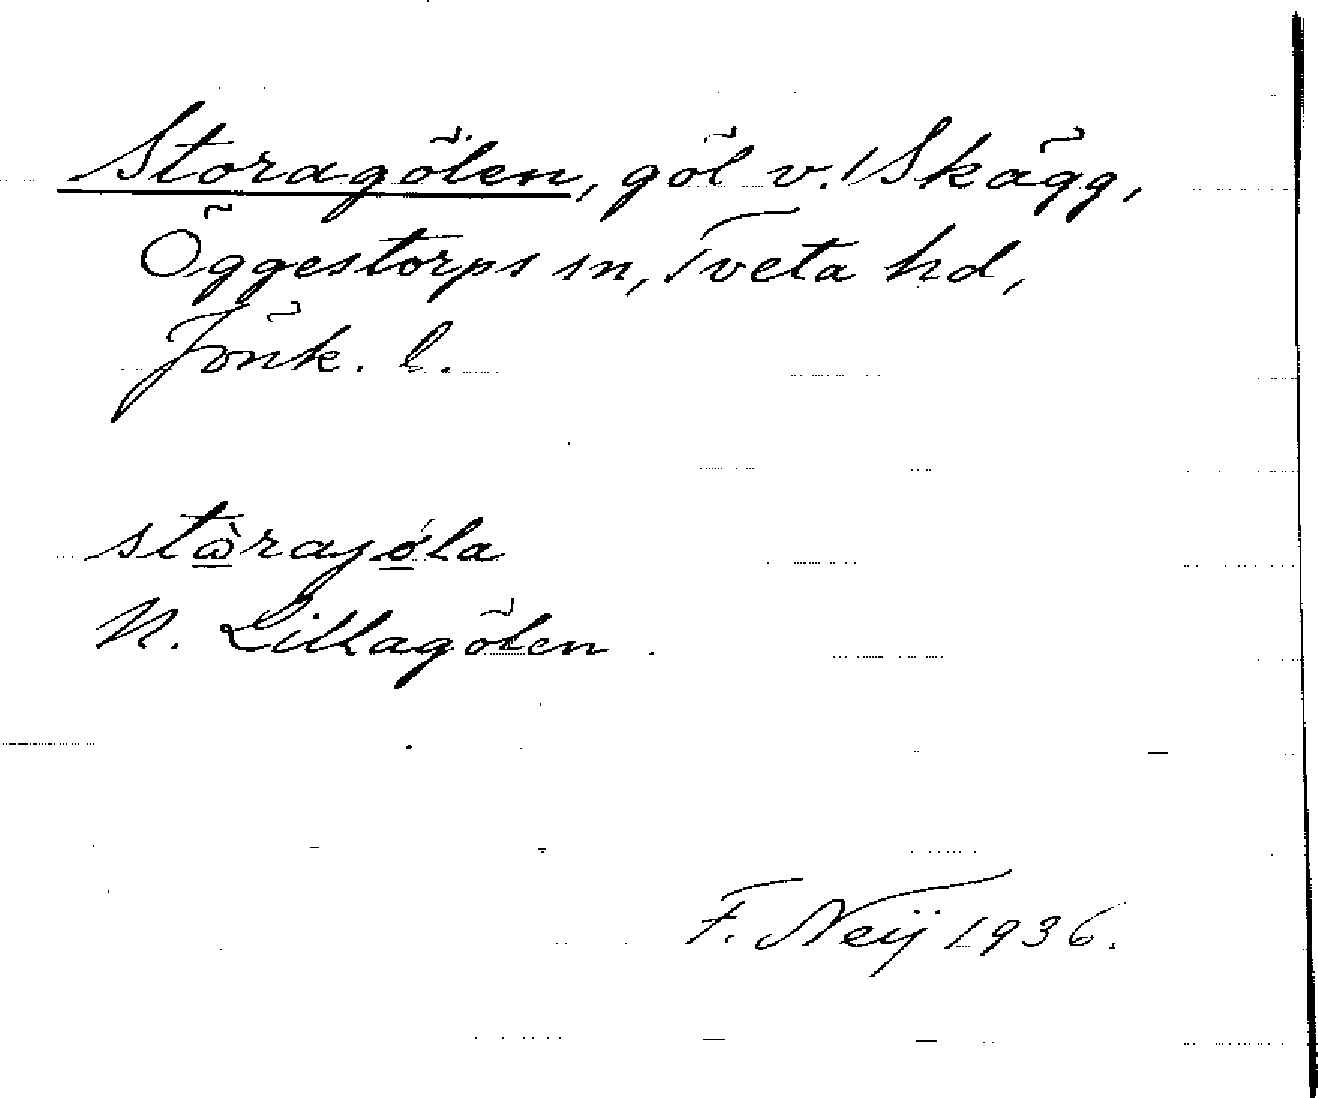 Storagölen, göl v. Skägg,
Öggestorps sn, Tveta hd,
Jönk. l.
stὼ̲rajǿ̲la
N. Lillagölen.
F. Neij 1936.